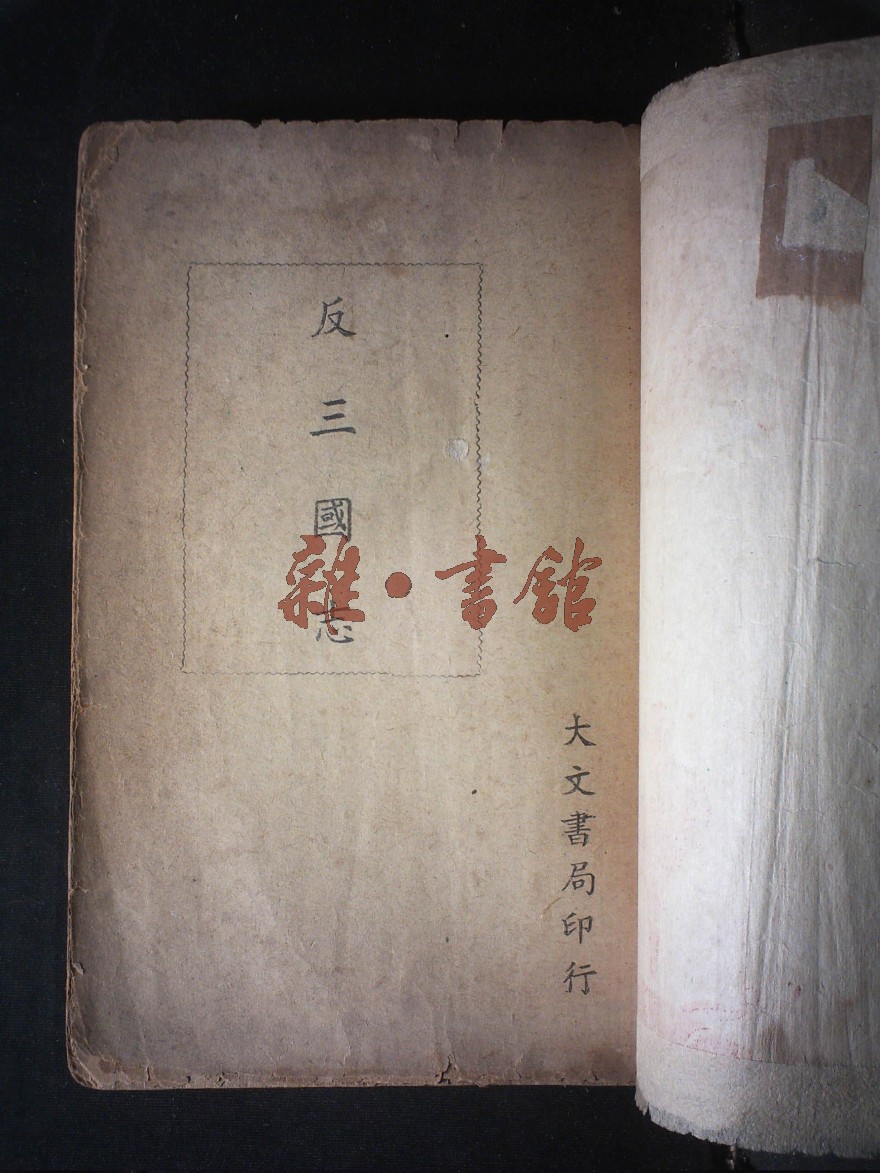 反三國志
雜·書館
大文書局印行